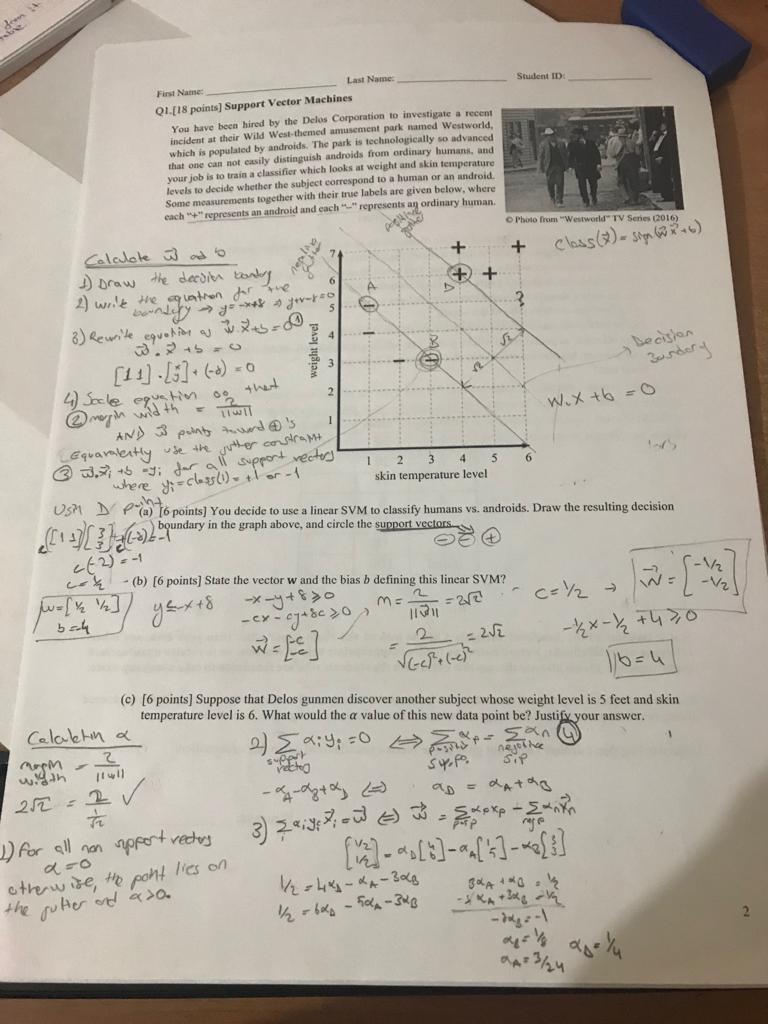 First Name:
Last Name:
Student ID:
Q1.[18 points] Support Vector Machines
You have been hired by the Delos Corporation to investigate a recent
incident at their Wild West-themed amusement park named Westworld,
which is populated by androids. The park is technologically so advanced
that one can not easily distinguish androids from ordinary humans, and
your job is to train a classifier which looks at weight and skin temperature
levels to decide whether the subject correspond to a human or an android.
Some measurements together with their true labels are given below, where
each "+" represents an android and each "–" represents an ordinary human.
© Photo from "Westworld" TV Series (2016)
class(x⃗) = sign(w⃗ x⃗ + b)
Calculate w⃗ and b
1) Draw the decision boundary
2) write the equation for the
boundary → y = -x+8 → y+x-8=0
3) Rewrite equation as w⃗.x⃗+b=0 ①
w⃗ . x⃗ + b = 0
[1 1] . [x y] + (-8) = 0
4) Scale equation so that
② margin width = 2/||w||
AND w⃗ points toward ⊕'s
Equavalently use the gutter constraint
③ w⃗.x⃗i +b = yi for all support vectors
where yi = class(i) = +1 or -1
negative
gutter
positive
gutter
7
6
5
4
3
2
1
weight level
1 2 3 4 5 6
skin temperature level
A
B
D
+ +
+ +
?
2
√2
√2
Decision
Boundary
w.x + b = 0
(a) [6 points] You decide to use a linear SVM to classify humans vs. androids. Draw the resulting decision
boundary in the graph above, and circle the support vectors.
⊖ ⊖ ⊕
point
c([1 1] [3 3] + (-8)) = -1
c(-2) = -1
c = ½
w = [½ ½]
b = -4
(b) [6 points] State the vector w and the bias b defining this linear SVM?
y ≤ -x+8
-x-y+8 ≥ 0
-cx - cy + 8c ≥ 0
w⃗ = [-c -c]
m = 2/||w⃗|| = 2√2
= 2/√((-c)²+(-c)²) = 2√2
c = 1/2 → w⃗ = [-1/2 -1/2]
-½x - ½ + 4 ≥ 0
b = 4
(c) [6 points] Suppose that Delos gunmen discover another subject whose weight level is 5 feet and skin
temperature level is 6. What would the α value of this new data point be? Justify your answer.
Calculating α
margin
width = 2/||w||
2√2 = 2/(1/√2) ✓
1) For all non support vectors
α = 0
otherwise, the point lies on
the gutter and α>0.
2) Σ αi yi = 0 ⟺ Σ αp = Σ αn ④
support
vectors
positive
negative
-αA - αB + αD ⟺ αD = αA + αB
3) Σ αi yi x⃗i = w⃗ ⟺ w⃗ = Σ αp xp - Σ αn x⃗n
[1/2 1/2] = αD [4 6] - αA [1 5] - αB [3 3]
1/2 = 4αD - αA - 3αB
1/2 = 6αD - 5αA - 3αB
3αA + αB = ½
αB = 1/8
αA = 3/24
αD = 1/4
2